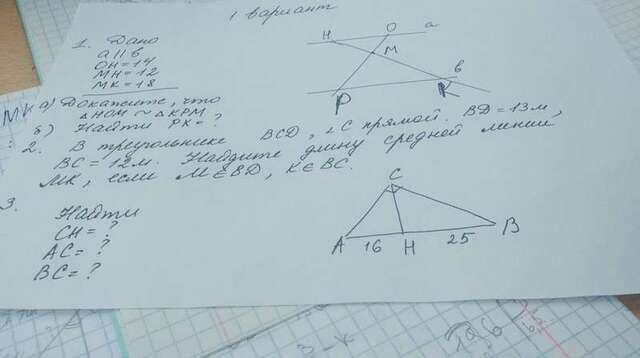 1 вариант
1. Дано
a || b
OH = 14
MH = 12
MK = 18
а) Докажите, что
△HOM ~ △KPM
б) Найти PK = ?
2. В треугольнике BCD, ∠C прямой. BD = 13м,
BC = 12м. Найдите длину средней линии
MK, если M∈BD, K∈BC.
3.
Найти
CH = ?
AC = ?
BC = ?
H O a
M
b
P K
C
A 16 H 25 B
МК
3 - х